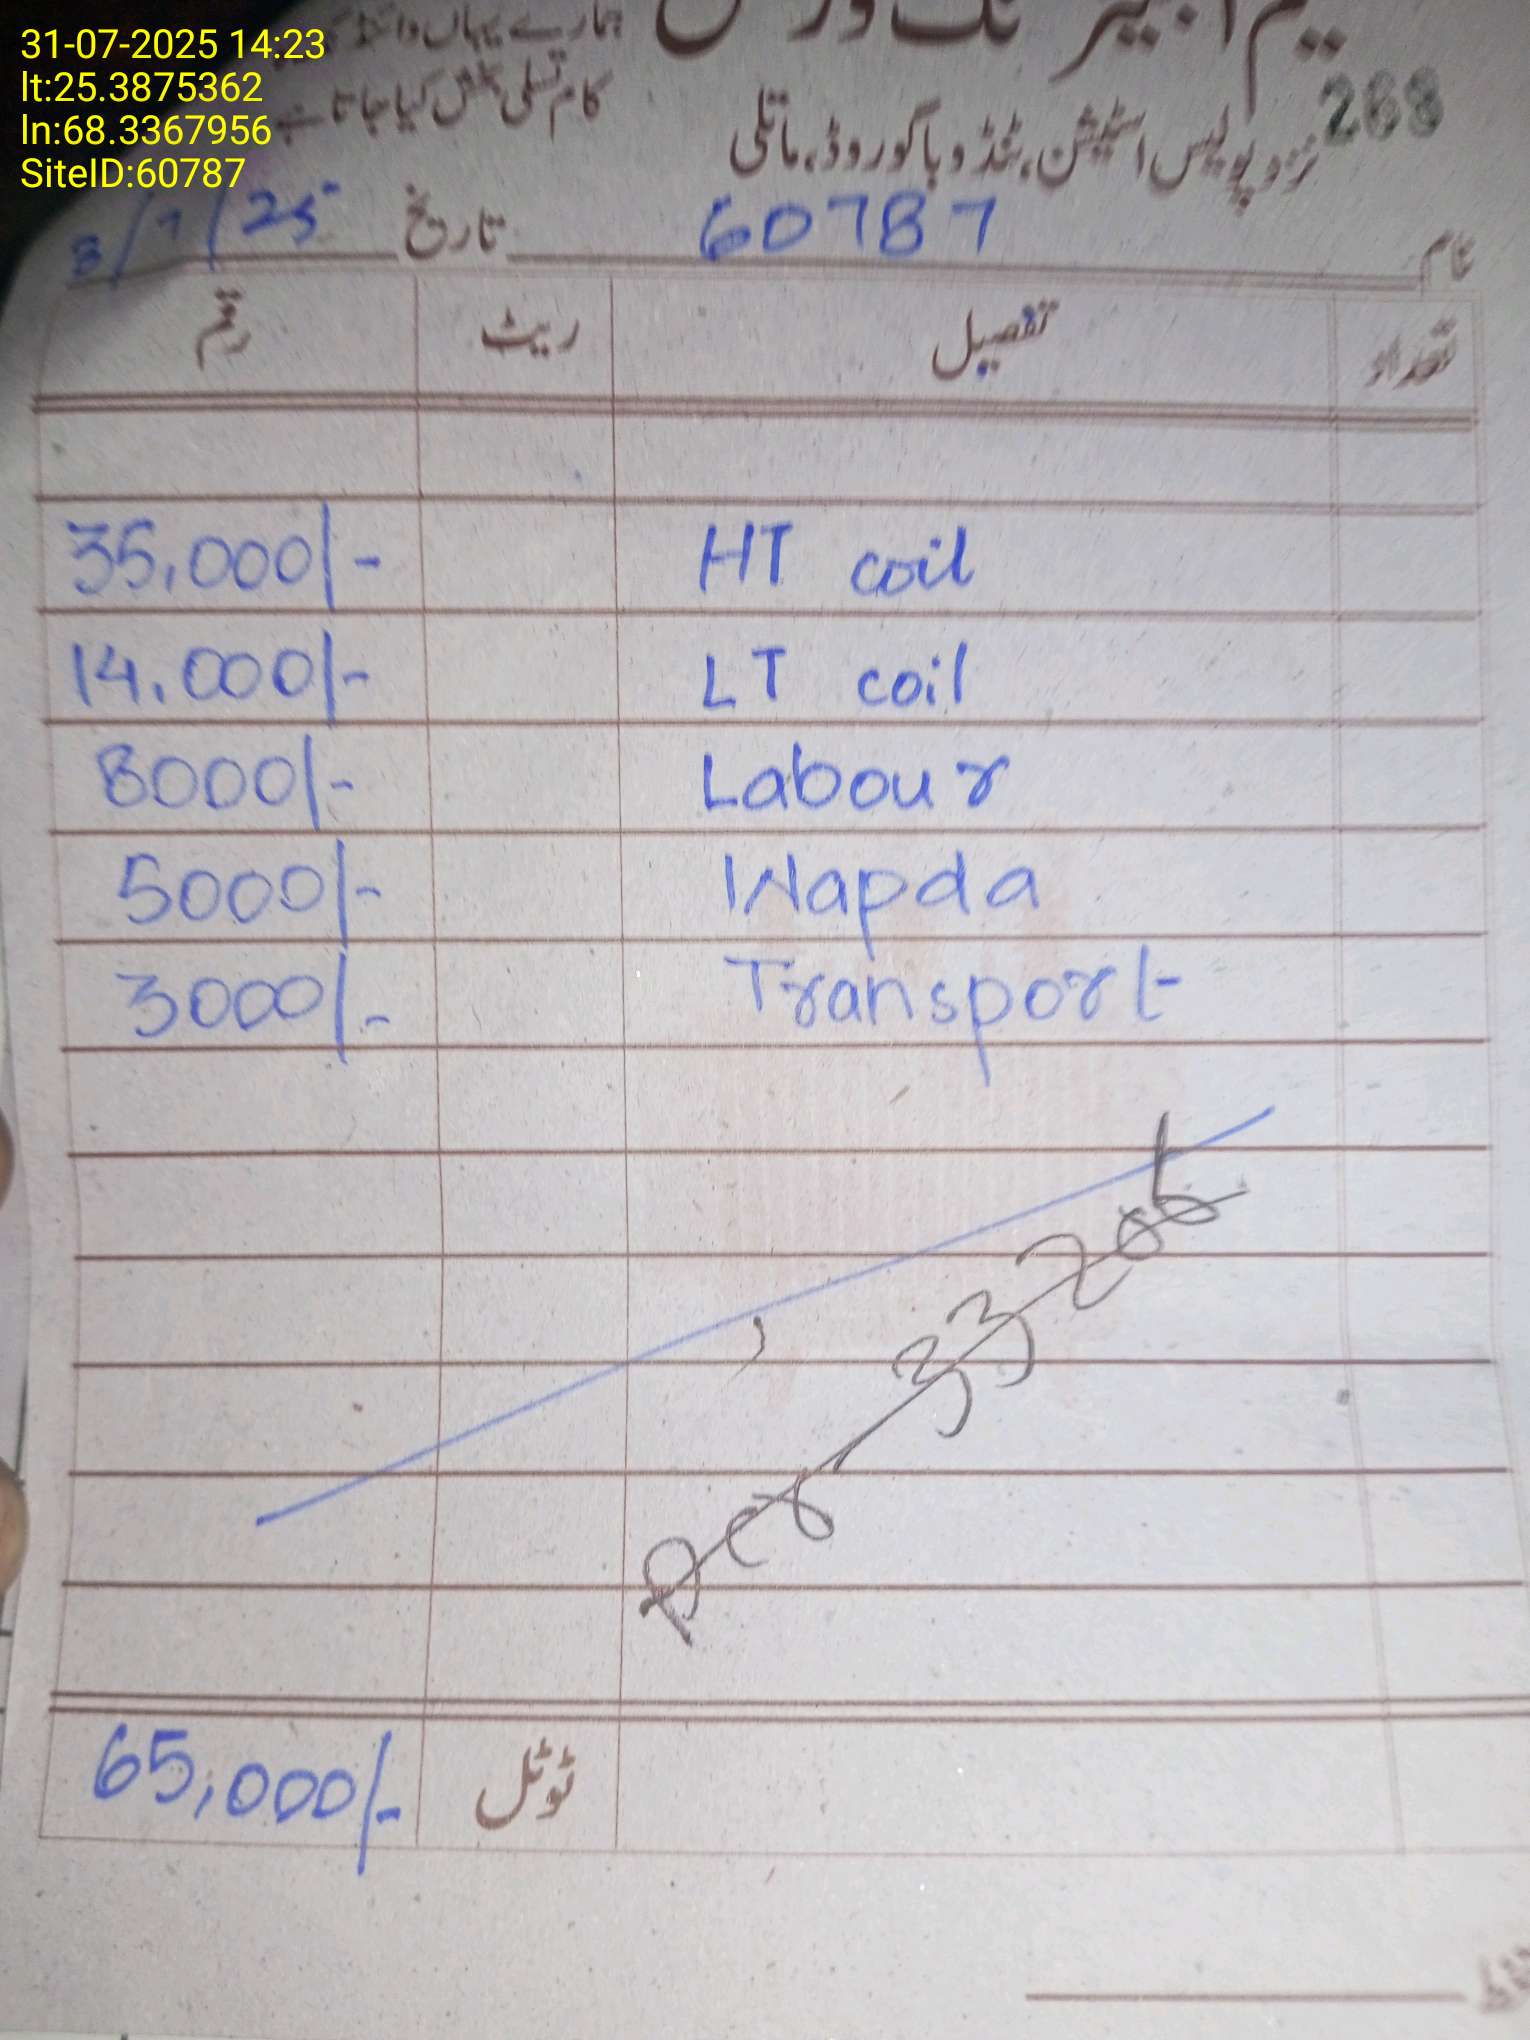 31-07-2025 14:23
lt:25.3875362
ln:68.3367956
SiteID:60787
ہمارے یہاں
کام تسلی بخش کیا جاتا ہے
268
نزد پولیس اسٹیشن، ٹنڈو باگو روڈ، ماتلی
نام 60787 تاریخ 3/7/25
تعداد تفصیل ریٹ رقم
HT coil 35,000/-
LT coil 14,000/-
Labour 8000/-
Wapda 5000/-
Transport 3000/-
ٹوٹل 65,000/-